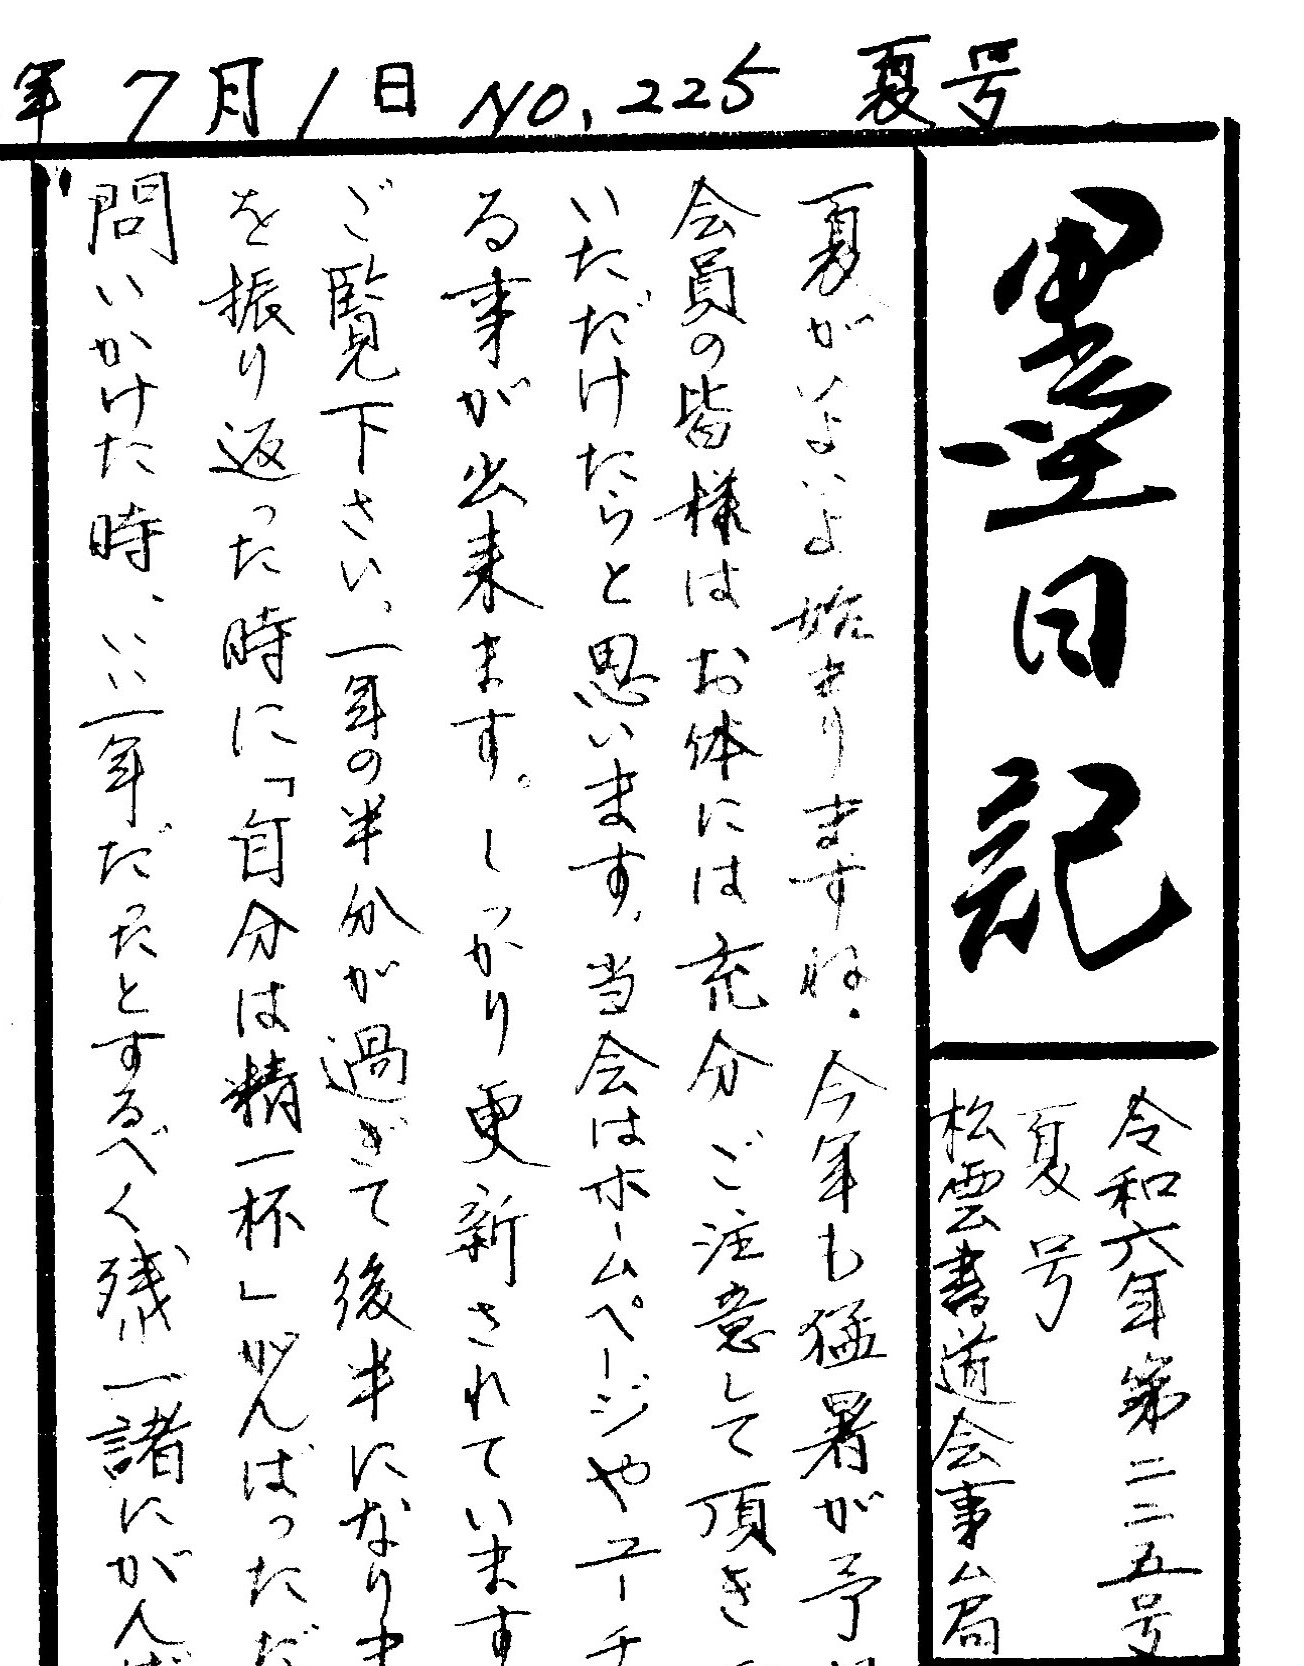 年 7月1日 NO.225 夏号
墨日記
令和六年第二二五号
夏号
松雲書道会事ム局
夏がいよいよ始まりますね.今年も猛暑が予
会員の皆様はお体には充分ご注意して頂き
いただけたらと思います.当会はホームページやユーチ
る事が出来ます。しっかり更新されています
ご覧下さい。一年の半分が過ぎて後半になりま
を振り返った時に「自分は精一杯」がんばっただ
問いかけた時、いい一年だったとするべく残り一諸にがんば